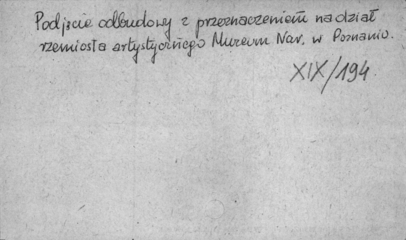 Podjęcie odbudowy z przeznaczeniem na dział
rzemiosła artystycznego Muzeum Nar. w Poznaniu.
XIX/194